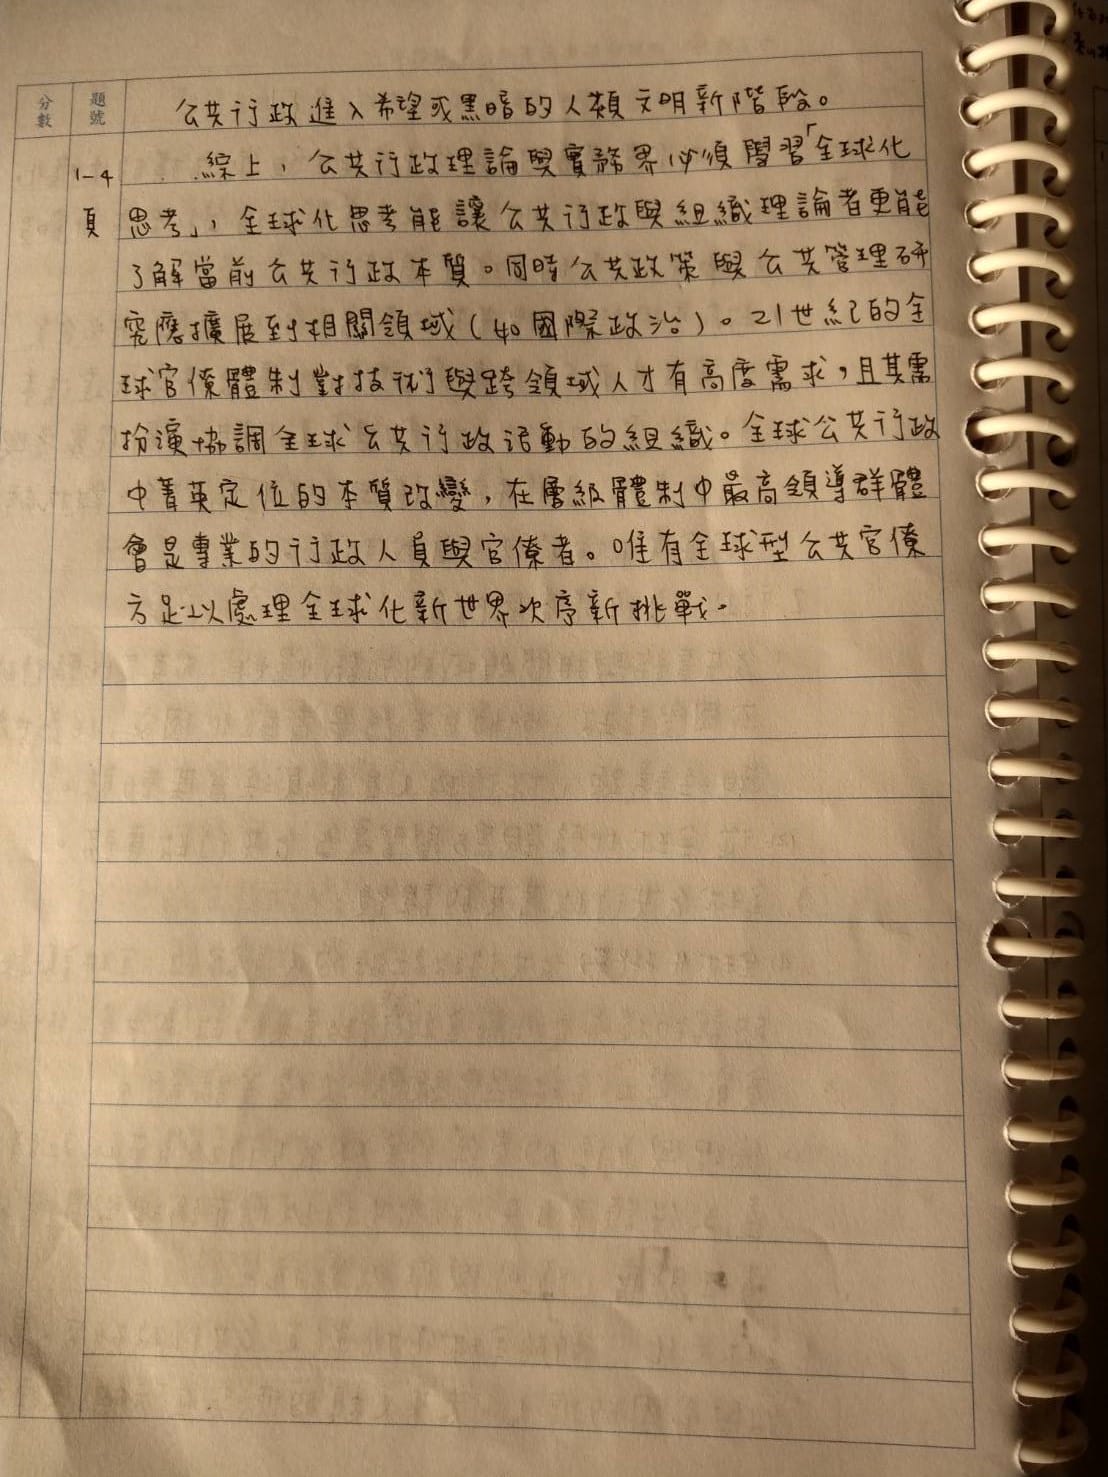 分數
題號
公共行政進入希望或黑暗的人類文明新階段。
1-4
頁
綜上，公共行政理論與實務界必須學習「全球化
思考」，全球化思考能讓公共行政與組織理論者更能
了解當前公共行政本質。同時公共政策與公共管理研
究應擴展到相關領域(如國際政治)。21世紀的全
球官僚體制對技術與跨領域人才有高度需求，且其需
扮演協調全球公共行政活動的組織。全球公共行政
中菁英定位的本質改變，在層級體制中最高領導群體
會是專業的行政人員與官僚者。唯有全球型公共官僚
方足以處理全球化新世界次序新挑戰。